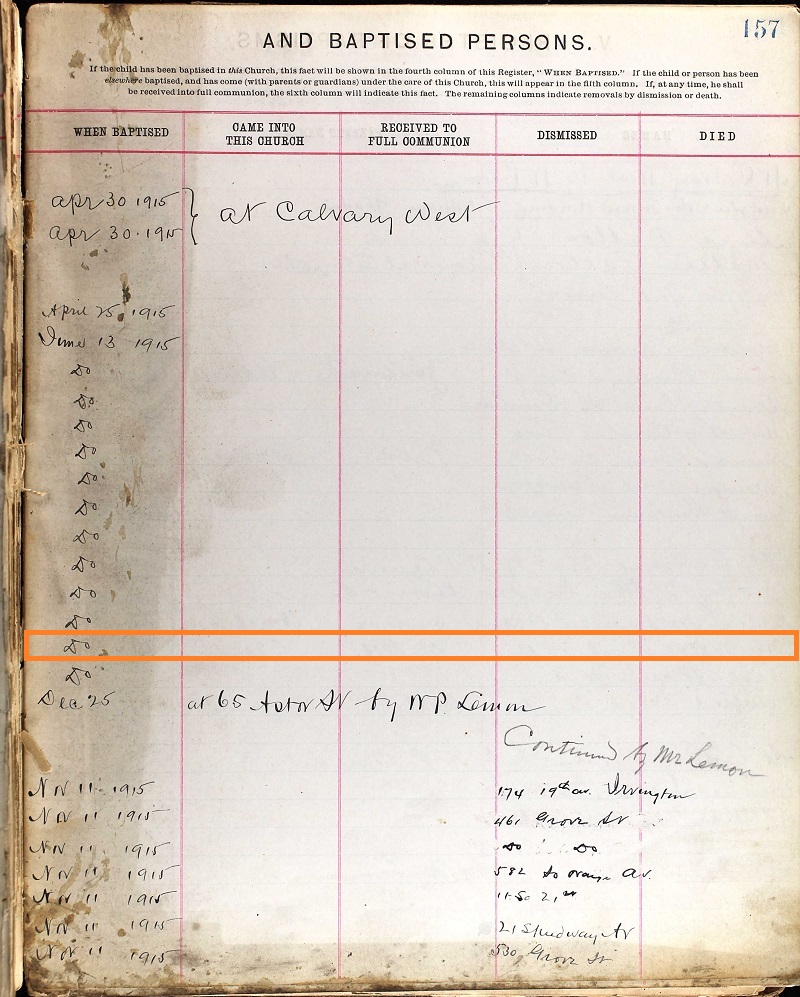 157
AND BAPTISED PERSONS.
If the child has been baptised in this Church, this fact will be shown in the fourth column of this Register, "WHEN BAPTISED." If the child or person has been
elsewhere baptised, and has come (with parents or guardians) under the care of this Church, this will appear in the fifth column. If, at any time, he shall
be received into full communion, the sixth column will indicate this fact. The remaining columns indicate removals by dismission or death.
WHEN BAPTISED CAME INTO THIS CHURCH RECEIVED TO FULL COMMUNION DISMISSED DIED
Apr 30 1915 } at Calvary West
Apr 30 1915
April 25, 1915
June 13 1915
Do
Do
Do
Do
Do
Do
Do
Do
Do
Do
Do
Do
Dec 25 at 65 Astor St by W P. Lemon
Continued by Mr Lemon
Nov 11 1915 174 19th av. Irvington
Nov 11 1915 461 Grove St
Nov 11 1915 Do Do
Nov 11 1915 582 So Orange Av.
Nov 11 1915 21st
Nov 11 1915 21 Speedway Av
Nov 11 1915 530 Grove St